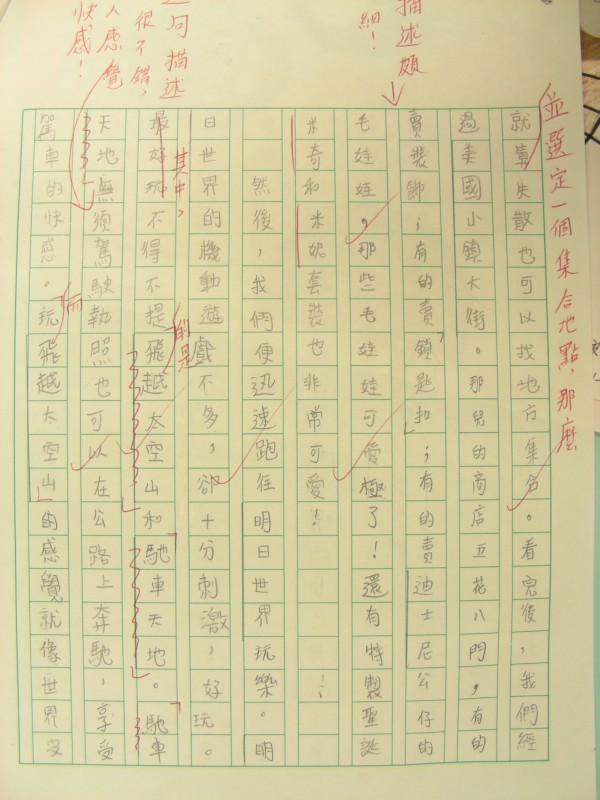 並選定一個集合地點，那麼
就算失散也可以找地方集合。看完後，我們經
過美國小鎮大街。那兒的商店五花八門，有的
賣裝飾；有的賣鎖匙扣；有的賣迪士尼公仔的
描述頗
細！
毛娃娃，那些毛娃娃可愛極了！還有特製聖誕
米奇和米妮套裝也非常可愛！
然後，我們便迅速跑往明日世界玩樂。明
日世界的機動遊戲不多，卻十分刺激，好玩。
其中，
描述
很不錯，
最好玩不得不提飛越太空山和「馳車天地」。「馳車
的是
人感覺
快感！
天地」無須駕駛執照也可以在公路上奔馳，享受
而
駕車的快感。玩「飛越太空山」的感覺就像世界沒